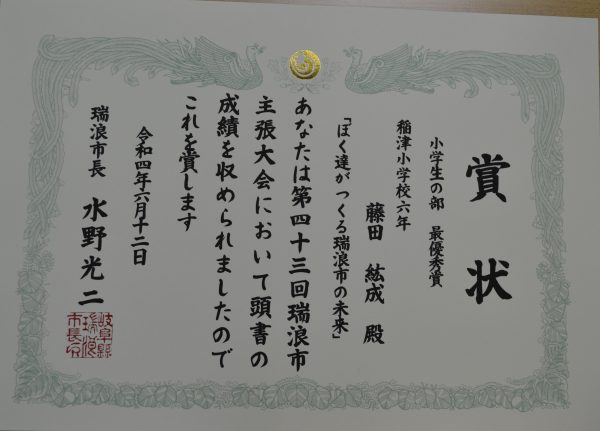 賞状
小学生の部 最優秀賞
稲津小学校六年
藤田 紘成 殿
「ぼく達がつくる瑞浪市の未来」
あなたは第四十三回瑞浪市
主張大会において頭書の
成績を収められましたので
これを賞します
令和四年六月十二日
瑞浪市長 水野光二
岐阜縣
瑞浪
市長印